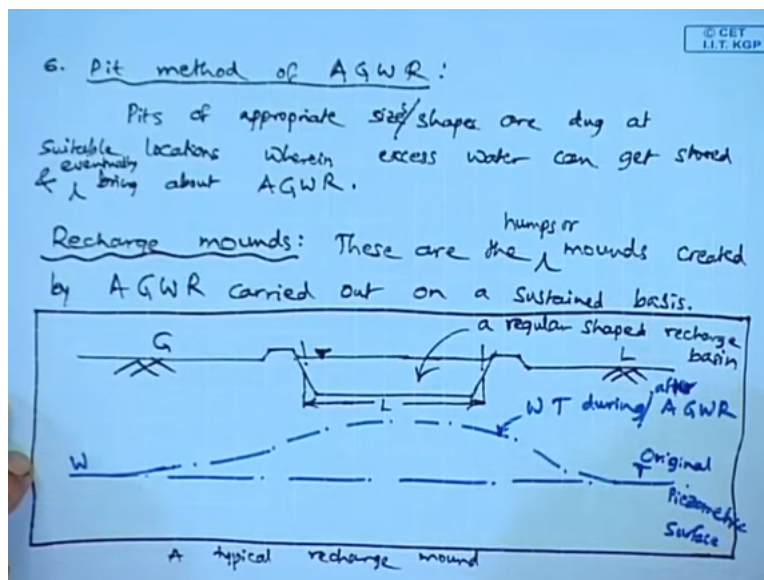 © CET
I.I.T. KGP
6. Pit method of AGWR:
Pits of appropriate sizes/shapes are dug at
suitable locations wherein excess water can get stored
& eventually bring about AGWR.
Recharge mounds: These are the humps or mounds created
by AGWR carried out on a sustained basis.
a regular shaped recharge
basin
G
L
L
WT during/after AGWR
W
T
Original
Piezometric
Surface
A typical recharge mound